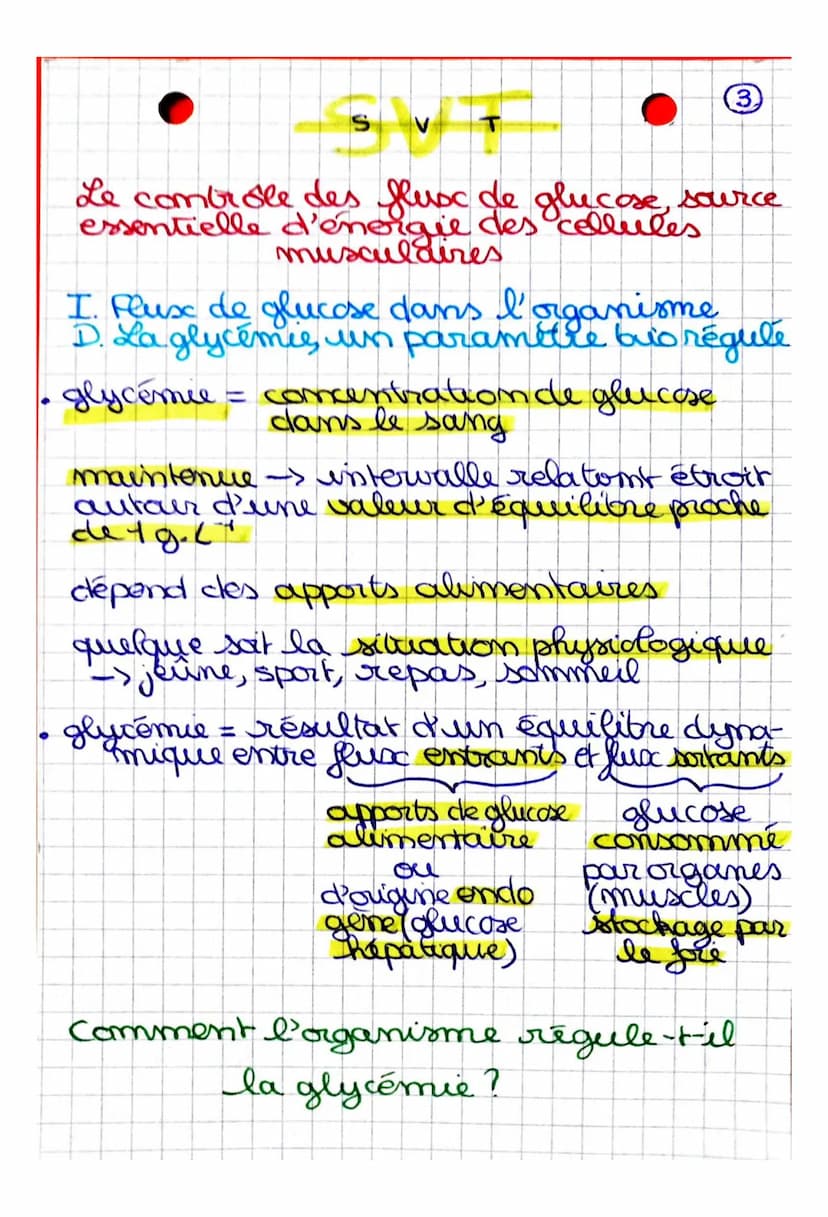 3
SVT
Le contrôle des flux de glucose, source
essentielle d'énergie des cellules
musculaires
I. Flux de glucose dans l'organisme
D. La glycémie, un paramètre bio régulé
• glycémie = concentration de glucose
dans le sang
maintenue -> intervalle relatomt étroit
autour d'une valeur d'équilibre proche
de 1 g.L⁻¹
dépend des apports alimentaires
quelque soit la situation physiologique
-> jeûne, sport, repas, sommeil
• glycémie = résultat d'un équilibre dyna-
mique entre flux entrants et flux sortants
apports de glucose glucose
alimentaire consommé
ou par organes
d'origine endo (muscles)
gène (glucose stockage par
hépatique) le foie
Comment l'organisme régule-t-il
la glycémie ?